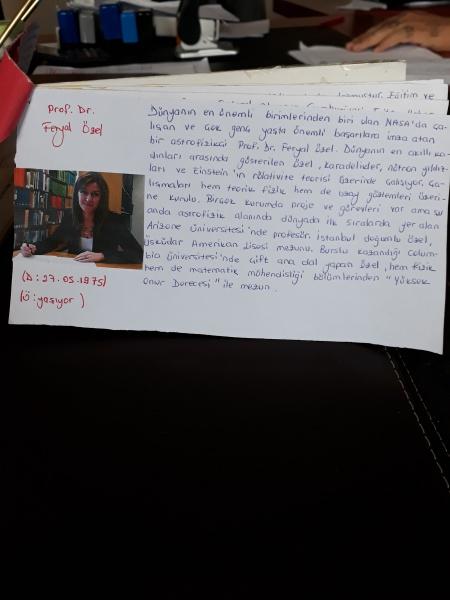 Eğitim ve
Prof. Dr.
Feryal Özel
Dünyanın en önemli birimlerinden biri olan NASA'da ça-
lışan ve çok genç yaşta önemli başarılara imza atan
bir astrofizikçi Prof. Dr. Feryal Özel. Dünyanın en akıllı ka-
dınları arasında gösterilen Özel, karadelikler, nötron yıldız-
ları ve Einstein'in rölativite teorisi üzerinde çalışıyor. Ça-
lışmaları hem teorik fizik hem de uzay gözlemleri üzeri-
ne kurulu. Birçok kurumda proje ve görevleri var ama şu
anda astrofizik alanında dünyada ilk sıralarda yer alan
Arizone Üniversitesi'nde profesör. İstanbul doğumlu Özel,
Üsküdar Amerikan Lisesi mezunu. Burslu kazandığı Colum-
bia Üniversitesi'nde çift ana dal yapan Özel, hem fizik
hem de matematik mühendisliği bölümlerinden "Yüksek
Onur Derecesi" ile mezun.
(D: 27.05.1975)
(Ö: yaşıyor)